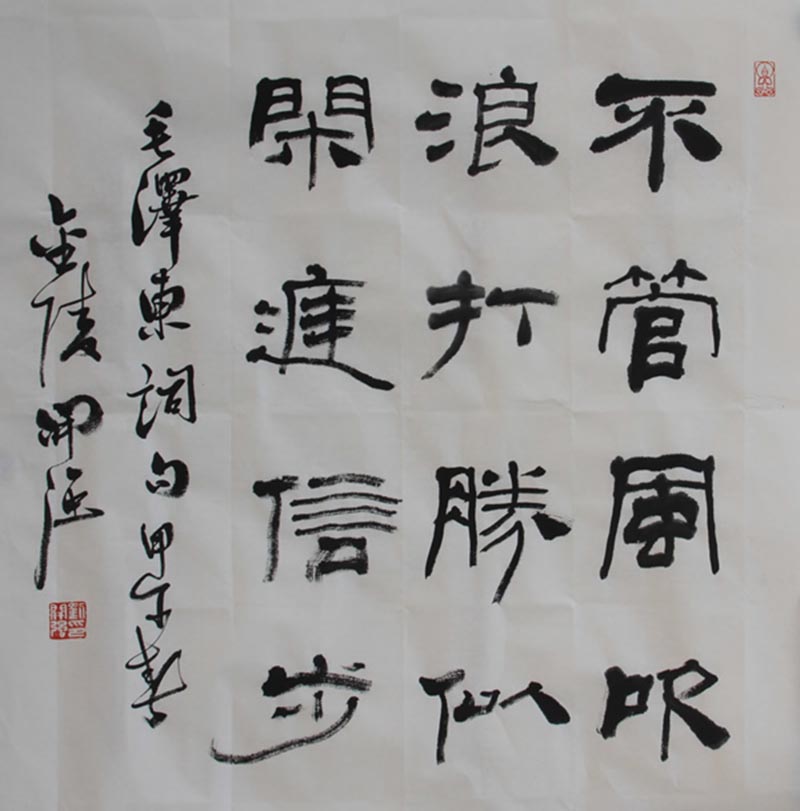 不管風吹
浪打勝似
閑庭信步
毛澤東詞句甲午春
金陵